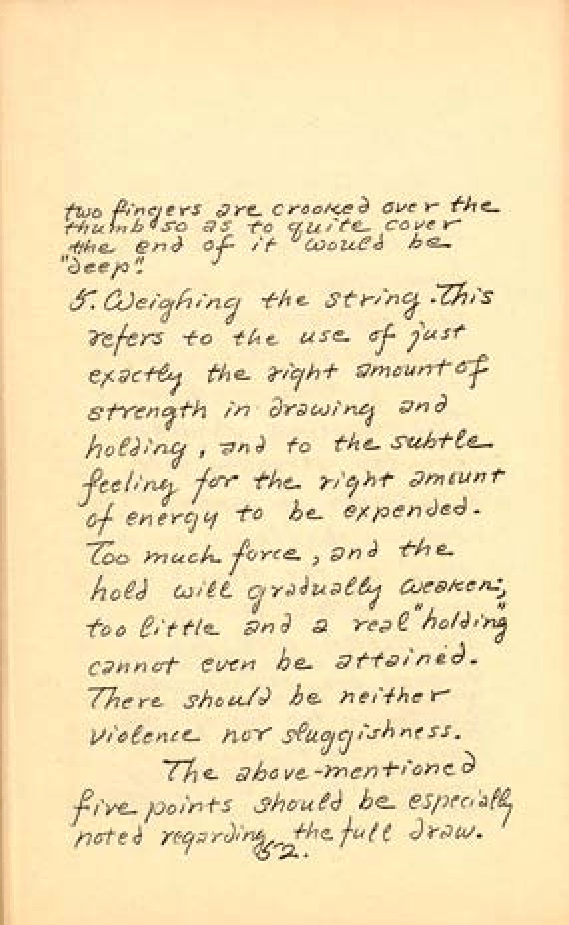 two fingers are crooked over the
thumb so as to quite cover
the end of it would be
"deep".
5. Weighing the string. This
refers to the use of just
exactly the right amount of
strength in drawing and
holding, and to the subtle
feeling for the right amount
of energy to be expended.
Too much force, and the
hold will gradually weaken;
too little and a real "holding"
cannot even be attained.
There should be neither
violence nor sluggishness.
The above-mentioned
five points should be especially
noted regarding the full draw.
52.